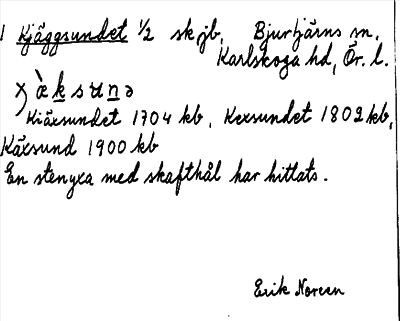 1 Kjäggsundet 1/2 sk jb, Bjurtjärns sn,
Karlskoga hd, Ör. l.
χ̀äksunə
Kiäxsundet 1704 kb, Kexsundet 1802 kb,
Käxsund 1900 kb
En stenyxa med skafthål har hittats.
Erik Noreen